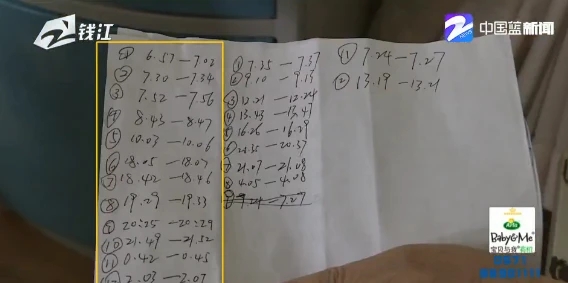 钱江
中国蓝新闻
① 6.57—7.02
② 7.30—7.34
③ 7.52—7.56
④ 8.43—8.47
⑤ 10.03—10.06
⑥ 18.05—18.07
⑦ 18.42—18.46
⑧ 19.29—19.33
⑨ 20:25—20:29
⑩ 21.49—21.52
⑪ 0.42—0.45
2.03—2.07
① 7.35—7.37
② 9.10—9.13
③ 12.21—12.24
④ 13.43—13.47
⑤ 16.26—16.29
⑥ 20.35—20.37
⑦ 21.07—21.08
⑧ 4.05—4.08
① 7.24—7.27
② 13.19—13.21
Arla
Baby&Me
宝贝与我